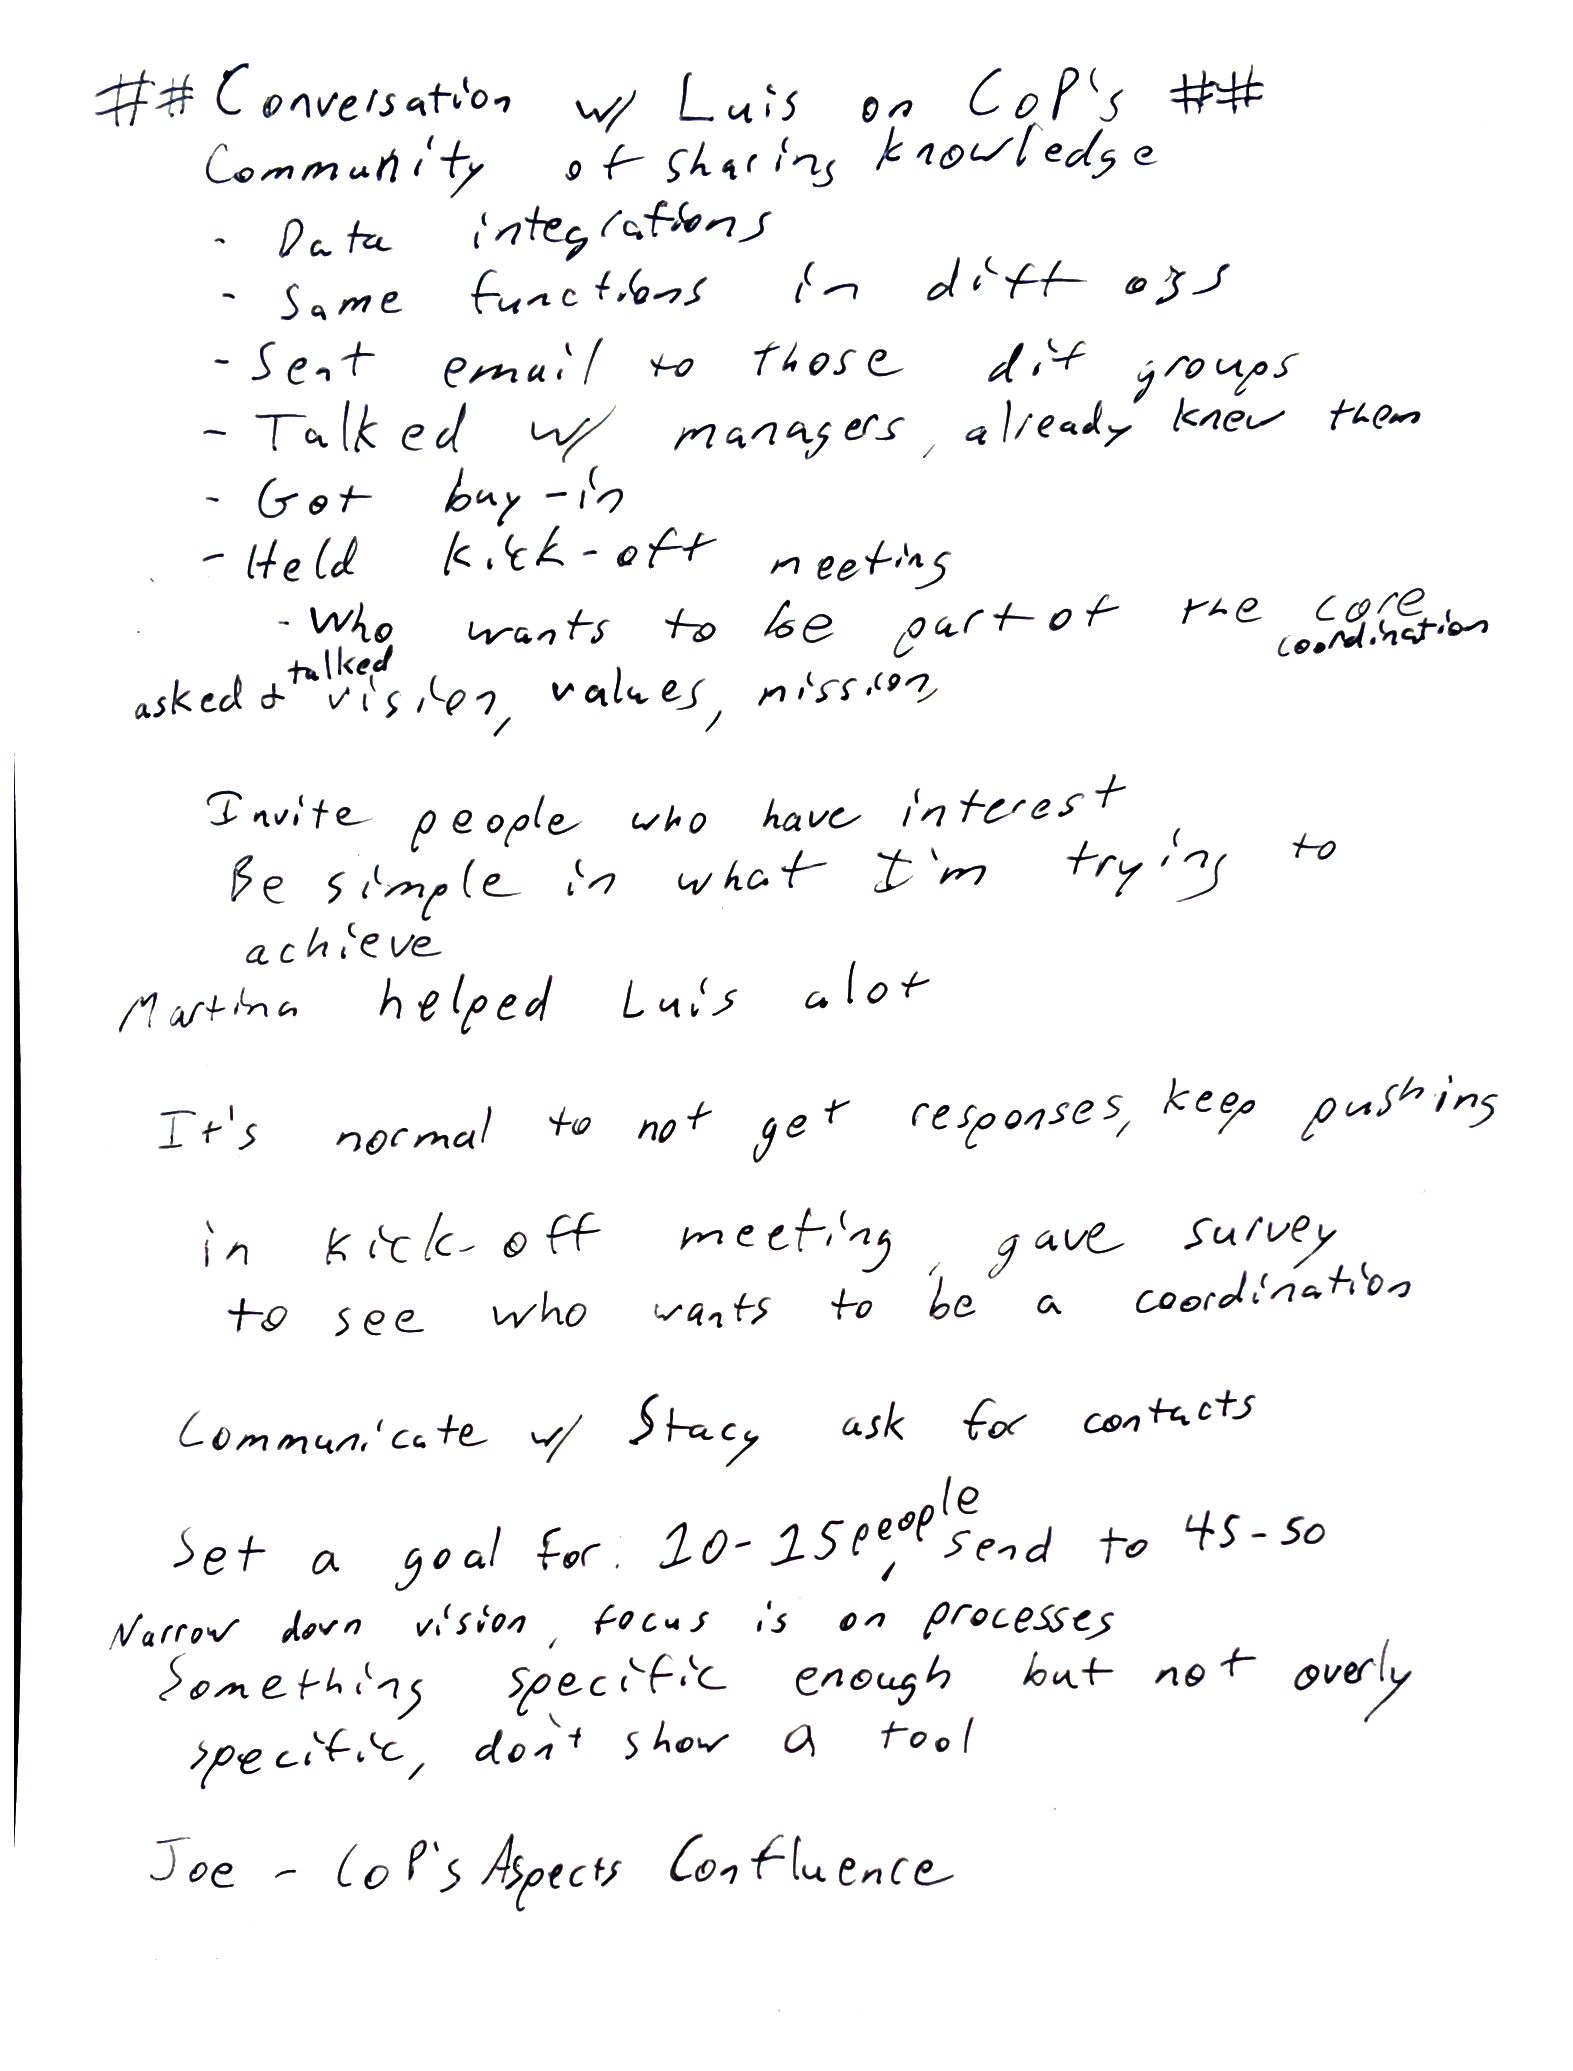 ## Conversation w/ Luis on CoP's ##
Community of sharing knowledge
- Data integrations
- Same functions in diff orgs
- Sent email to those dif groups
- Talked w/ managers, already knew them
- Got buy-in
- Held kick-off meeting
- Who wants to be part of the core
coordination
asked & talked vision, values, mission,
Invite people who have interest
Be simple in what I'm trying to
achieve
Martina helped Luis alot
It's normal to not get responses, keep pushing
in kick-off meeting, gave survey
to see who wants to be a coordination
Communicate w/ Stacy ask for contacts
Set a goal for 10-15 people, send to 45-50
Narrow down vision, focus is on processes
Something specific enough but not overly
specific, don't show a tool
Joe - CoP's Aspects Confluence